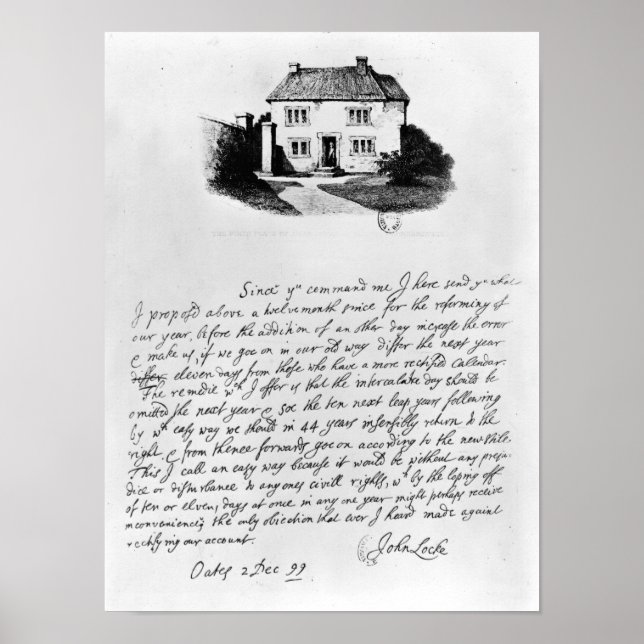 Since yu command me I here send yu what
I proposd above a twelvemonth since for the reforming of
our year, before the addition of an other day increase the error
& make us if we goe on in our old way differ the next year
differ eleven days from those who have a more rectified Calendar.
The remedie wch I offer is that the intercalare day should be
omitted the next year & soe the ten next leap years following
by wch easy way we should in 44 years insensibly return to the
right & from thence forwards goe on according to the new stile
This I call an easy way because it would be without any preju-
dice or disturbance to any ones civill rights, wch by the loping off
of ten or eleven days at once in any one year might perhaps receive
inconveniencie, the only objection that ever I heard made against
rectifying our account.
John Locke
Oates 2 Dec 99